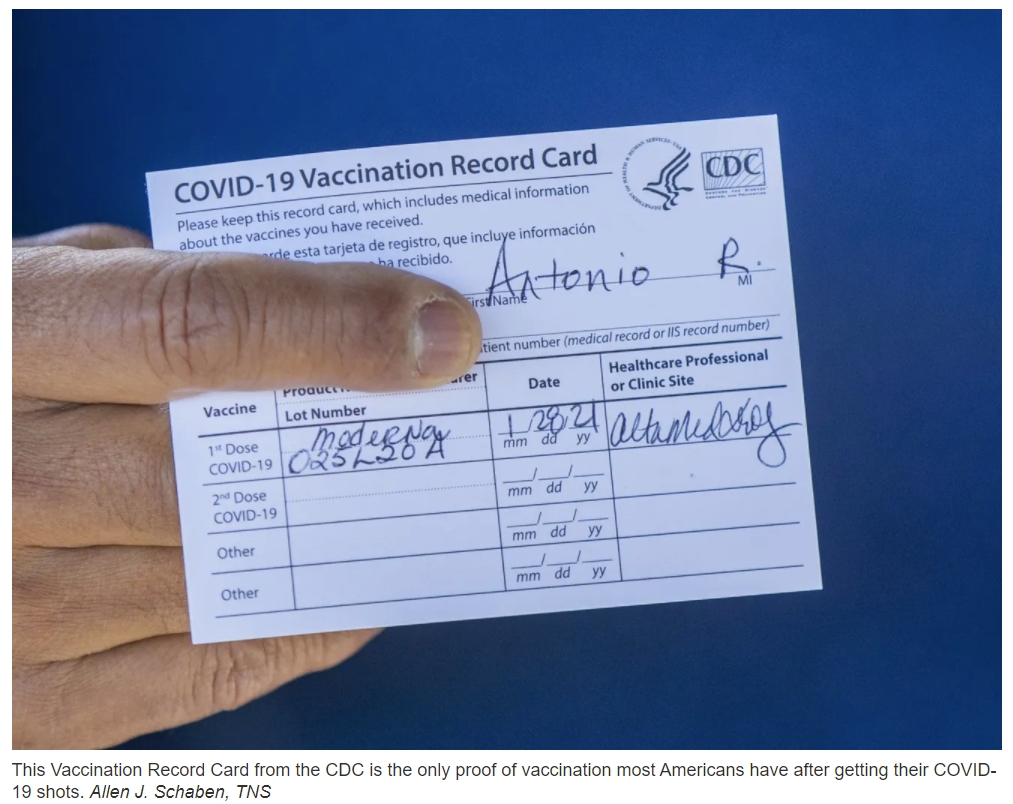 COVID-19 Vaccination Record Card
CDC
Please keep this record card, which includes medical information
about the vaccines you have received.
esta tarjeta de registro, que incluye información
ha recibido.
Antonio R.
First Name MI
number (medical record or IIS record number)
Vaccine
Lot Number
Date
Healthcare Professional
or Clinic Site
1st Dose
COVID-19
Moderna
025L20A
1/28/21
mm dd yy
2nd Dose
COVID-19
mm dd yy
Other
mm dd yy
Other
mm dd yy
This Vaccination Record Card from the CDC is the only proof of vaccination most Americans have after getting their COVID-
19 shots. Allen J. Schaben, TNS